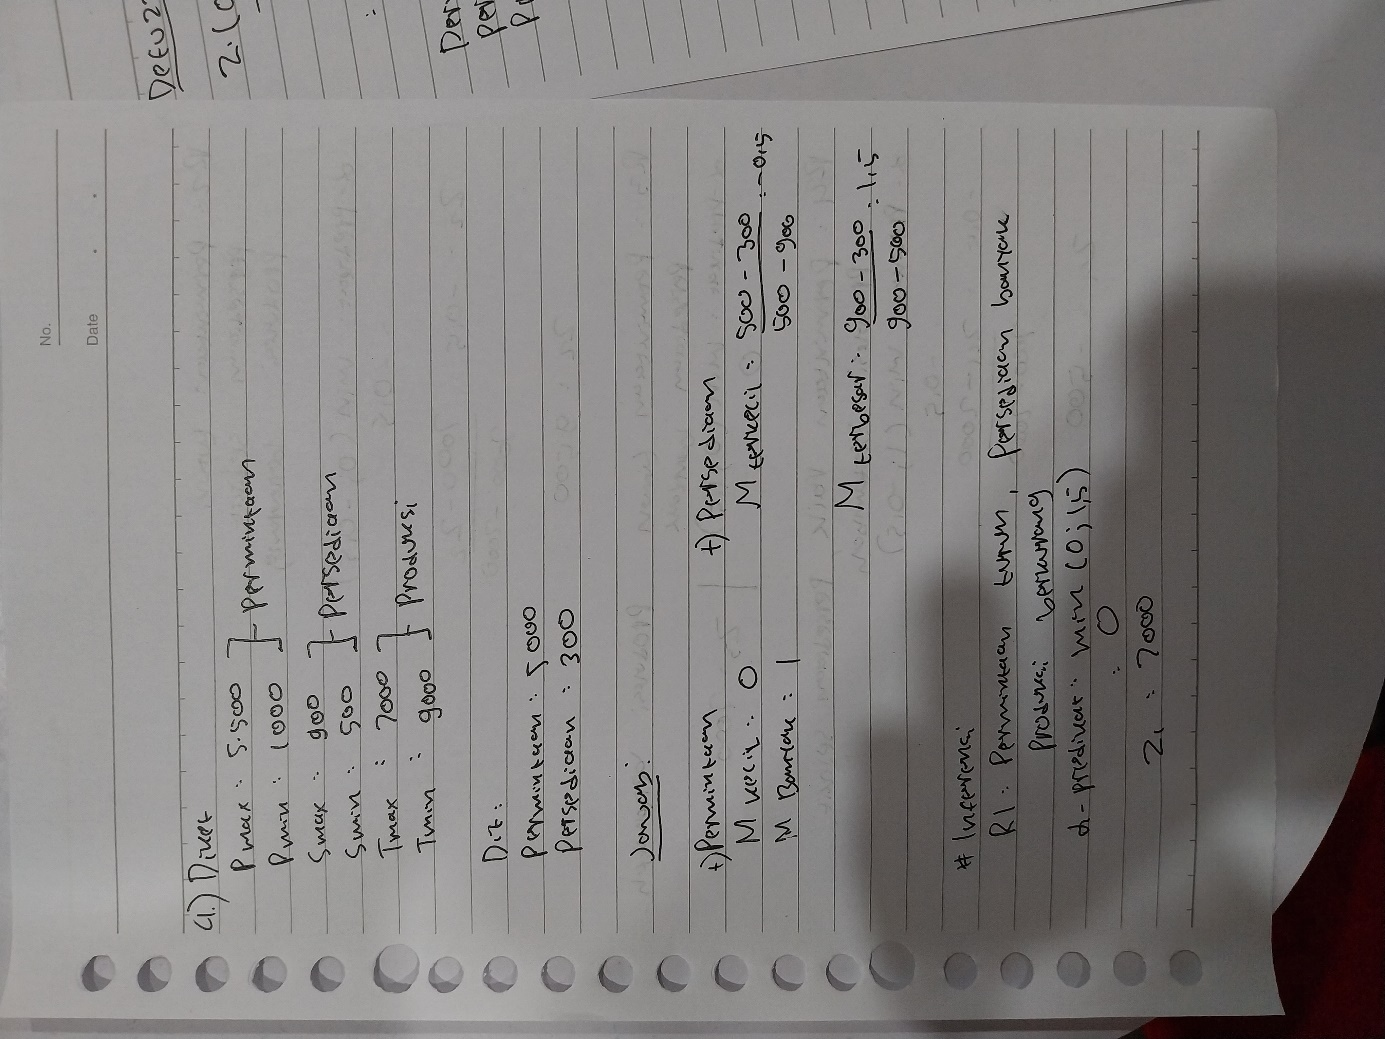 No.
Date
a.) Diket
Pmax : 5.500
Pmin : 1000
} Permintaan
Smax : 900
Smin : 500
} Persediaan
Tmax : 7000
Tmin : 9000
} Produksi
Dit :
Permintaan : 5000
Persediaan : 300
Jawab :
+) Permintaan
M kecil : 0
M Banyak : 1
+) Persediaan
M terkecil : 500 - 300 / 500 - 900 : -0,5
M terbesar : 900 - 300 / 900 - 500 : 1,5
# Inferensi
R1 : Permintaan turun, Persediaan banyak
Produksi berkurang
α - predikat : min (0 ; 1,5)
: 0
Z1 : 7000